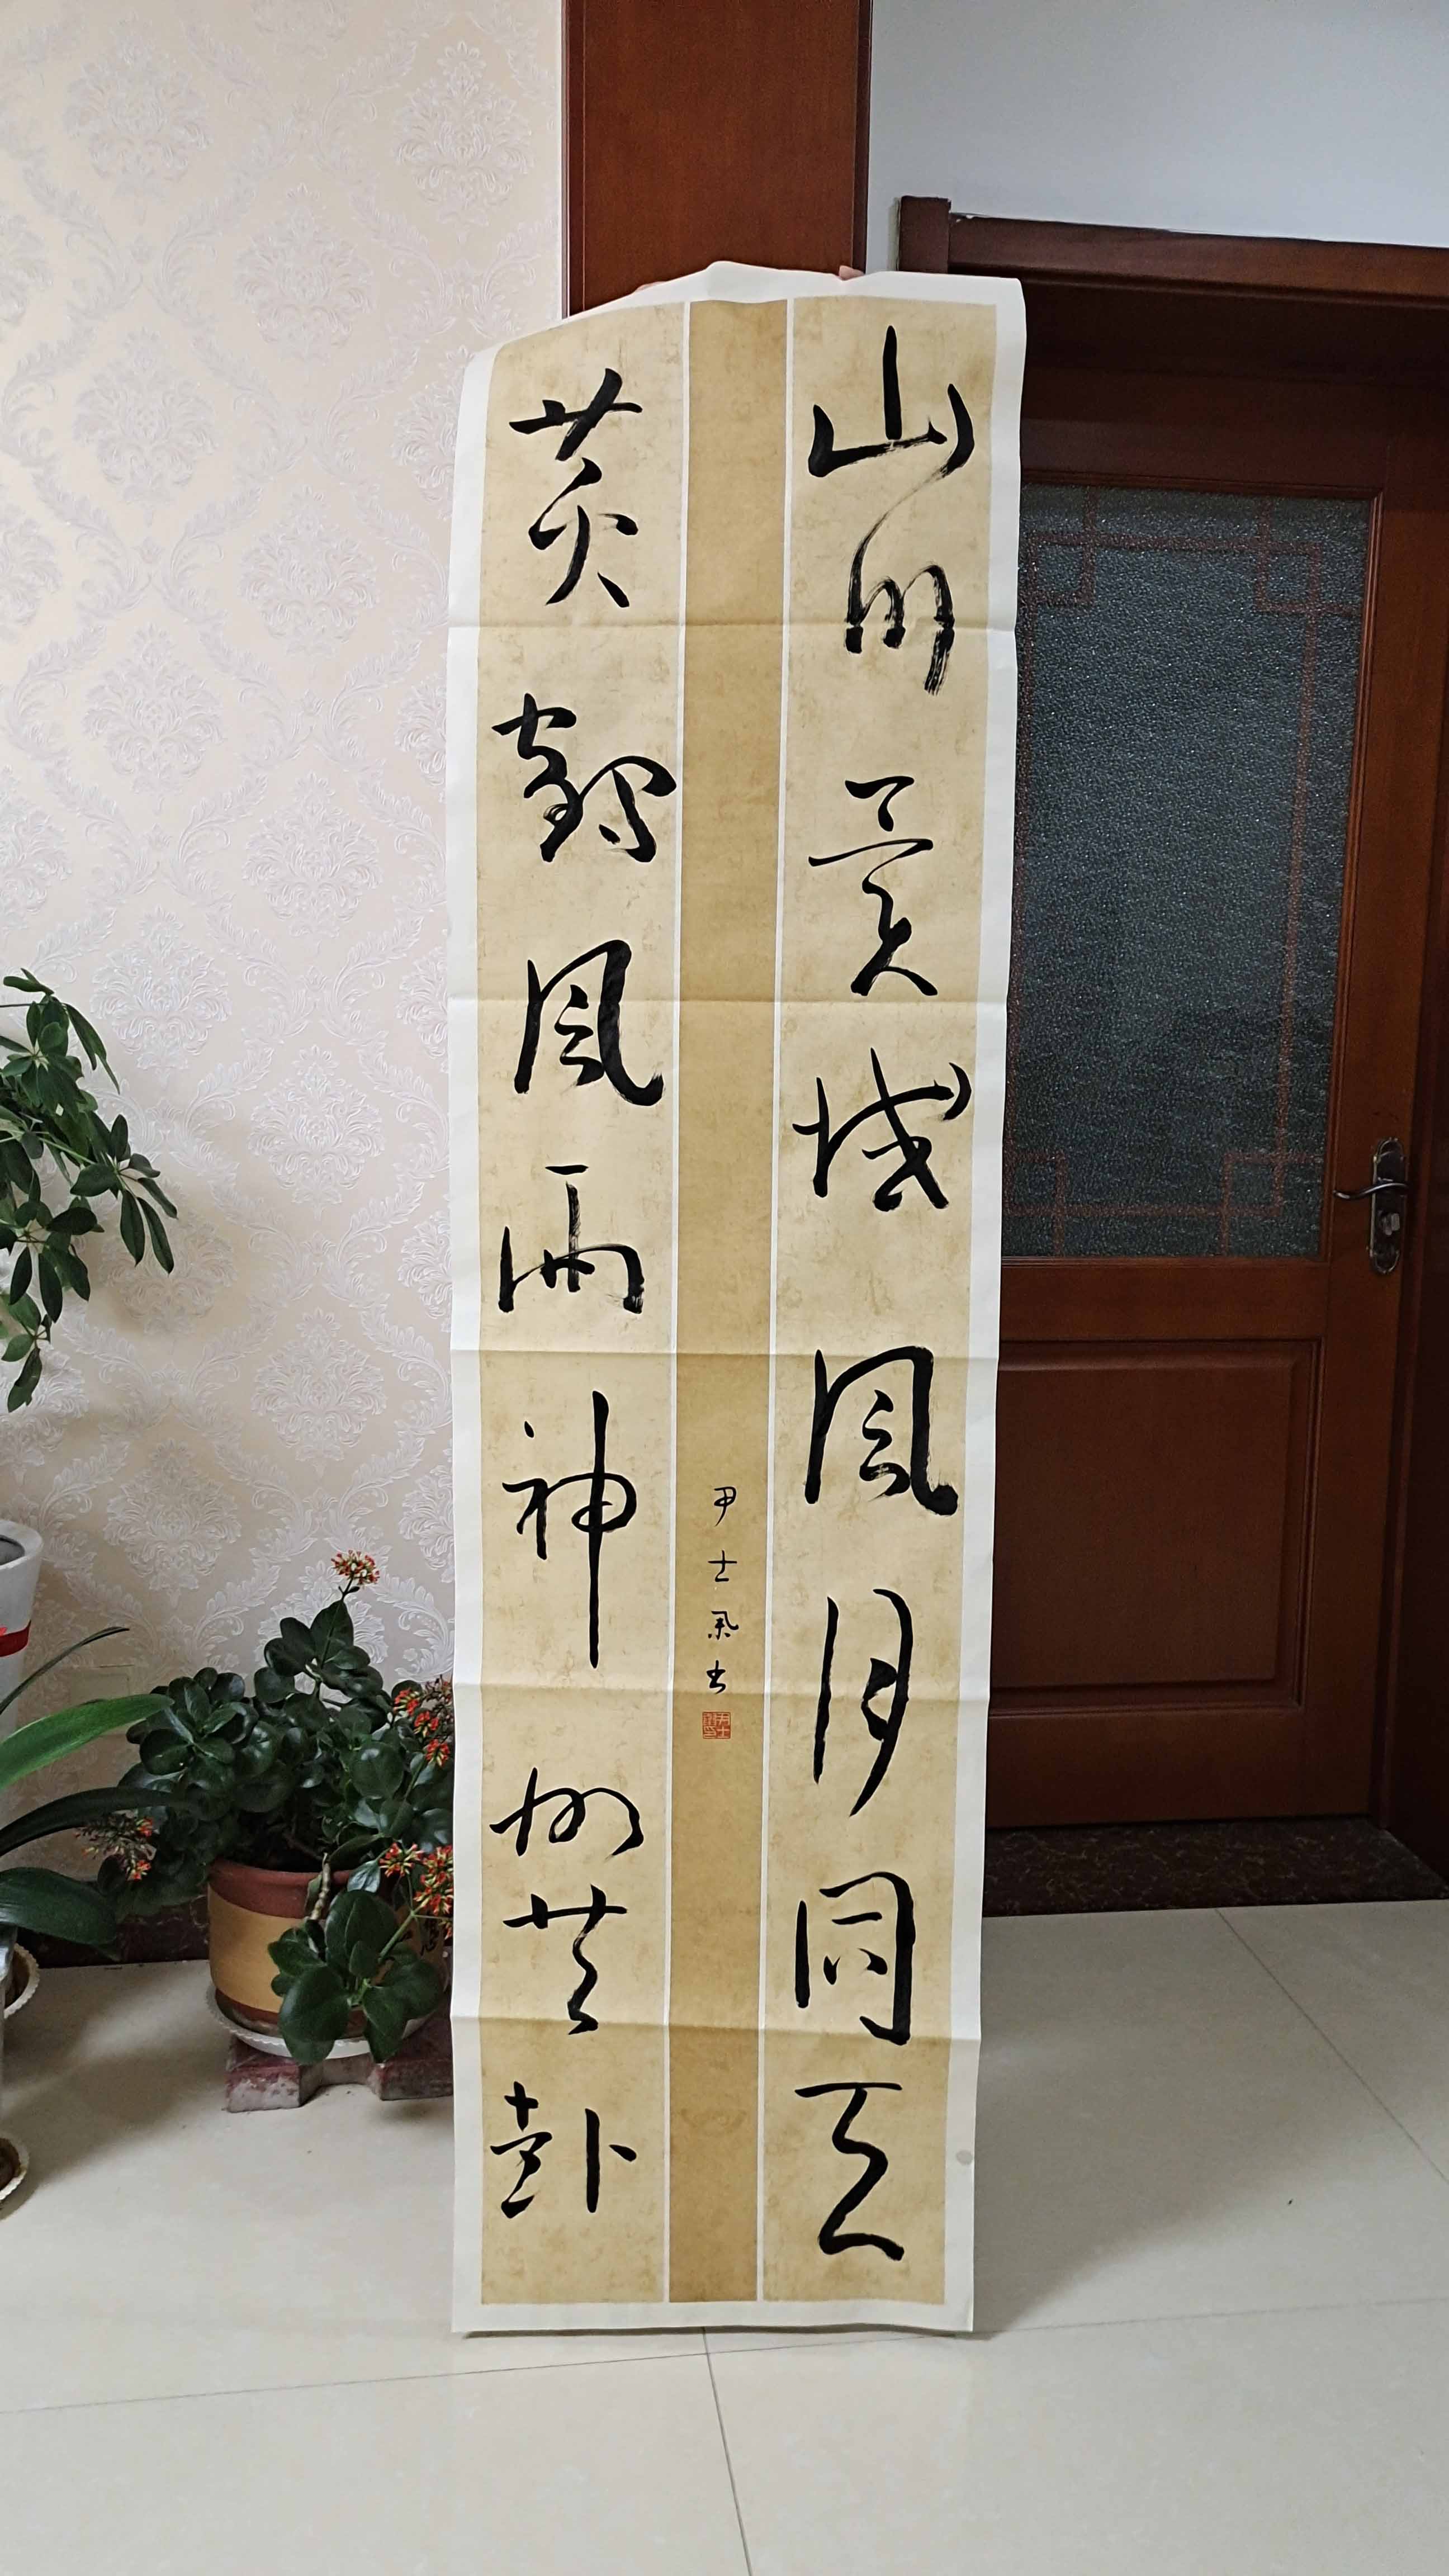 山川異域風月同天
黄鶴風雨神州共赴
尹士书